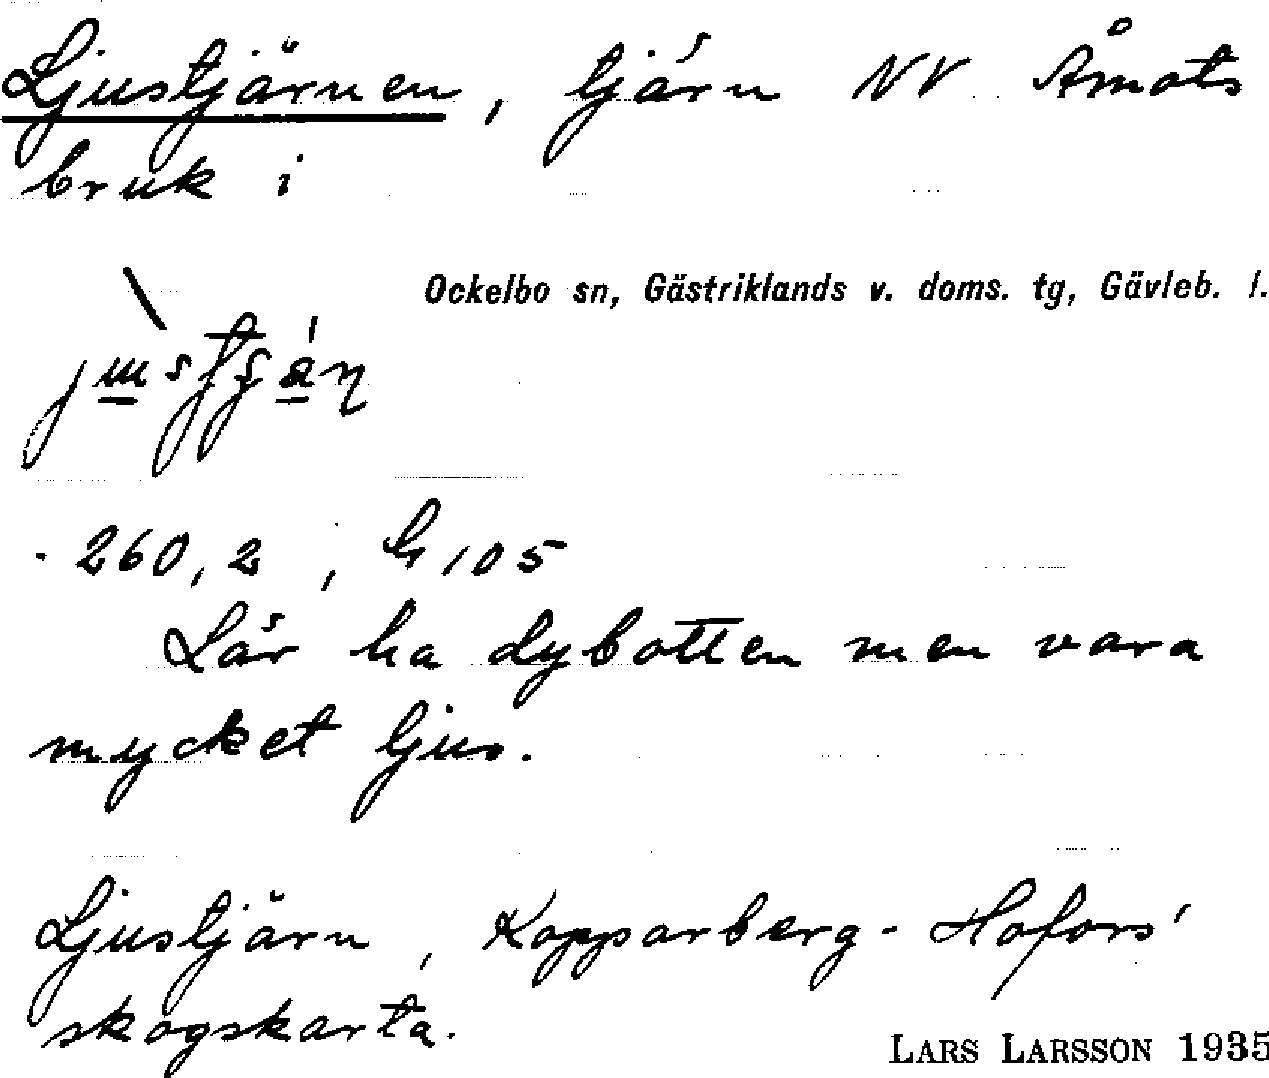 Ljustjärnen, tjärn NV Åmots
bruk i
Ockelbo sn, Gästriklands v. doms. tg, Gävleb. l.
260,2, G 105
Lär ha dybotten men vara
mycket ljus.
Ljustjärn, Kopparberg-Hofors'
skogskarta.
LARS LARSSON 1935